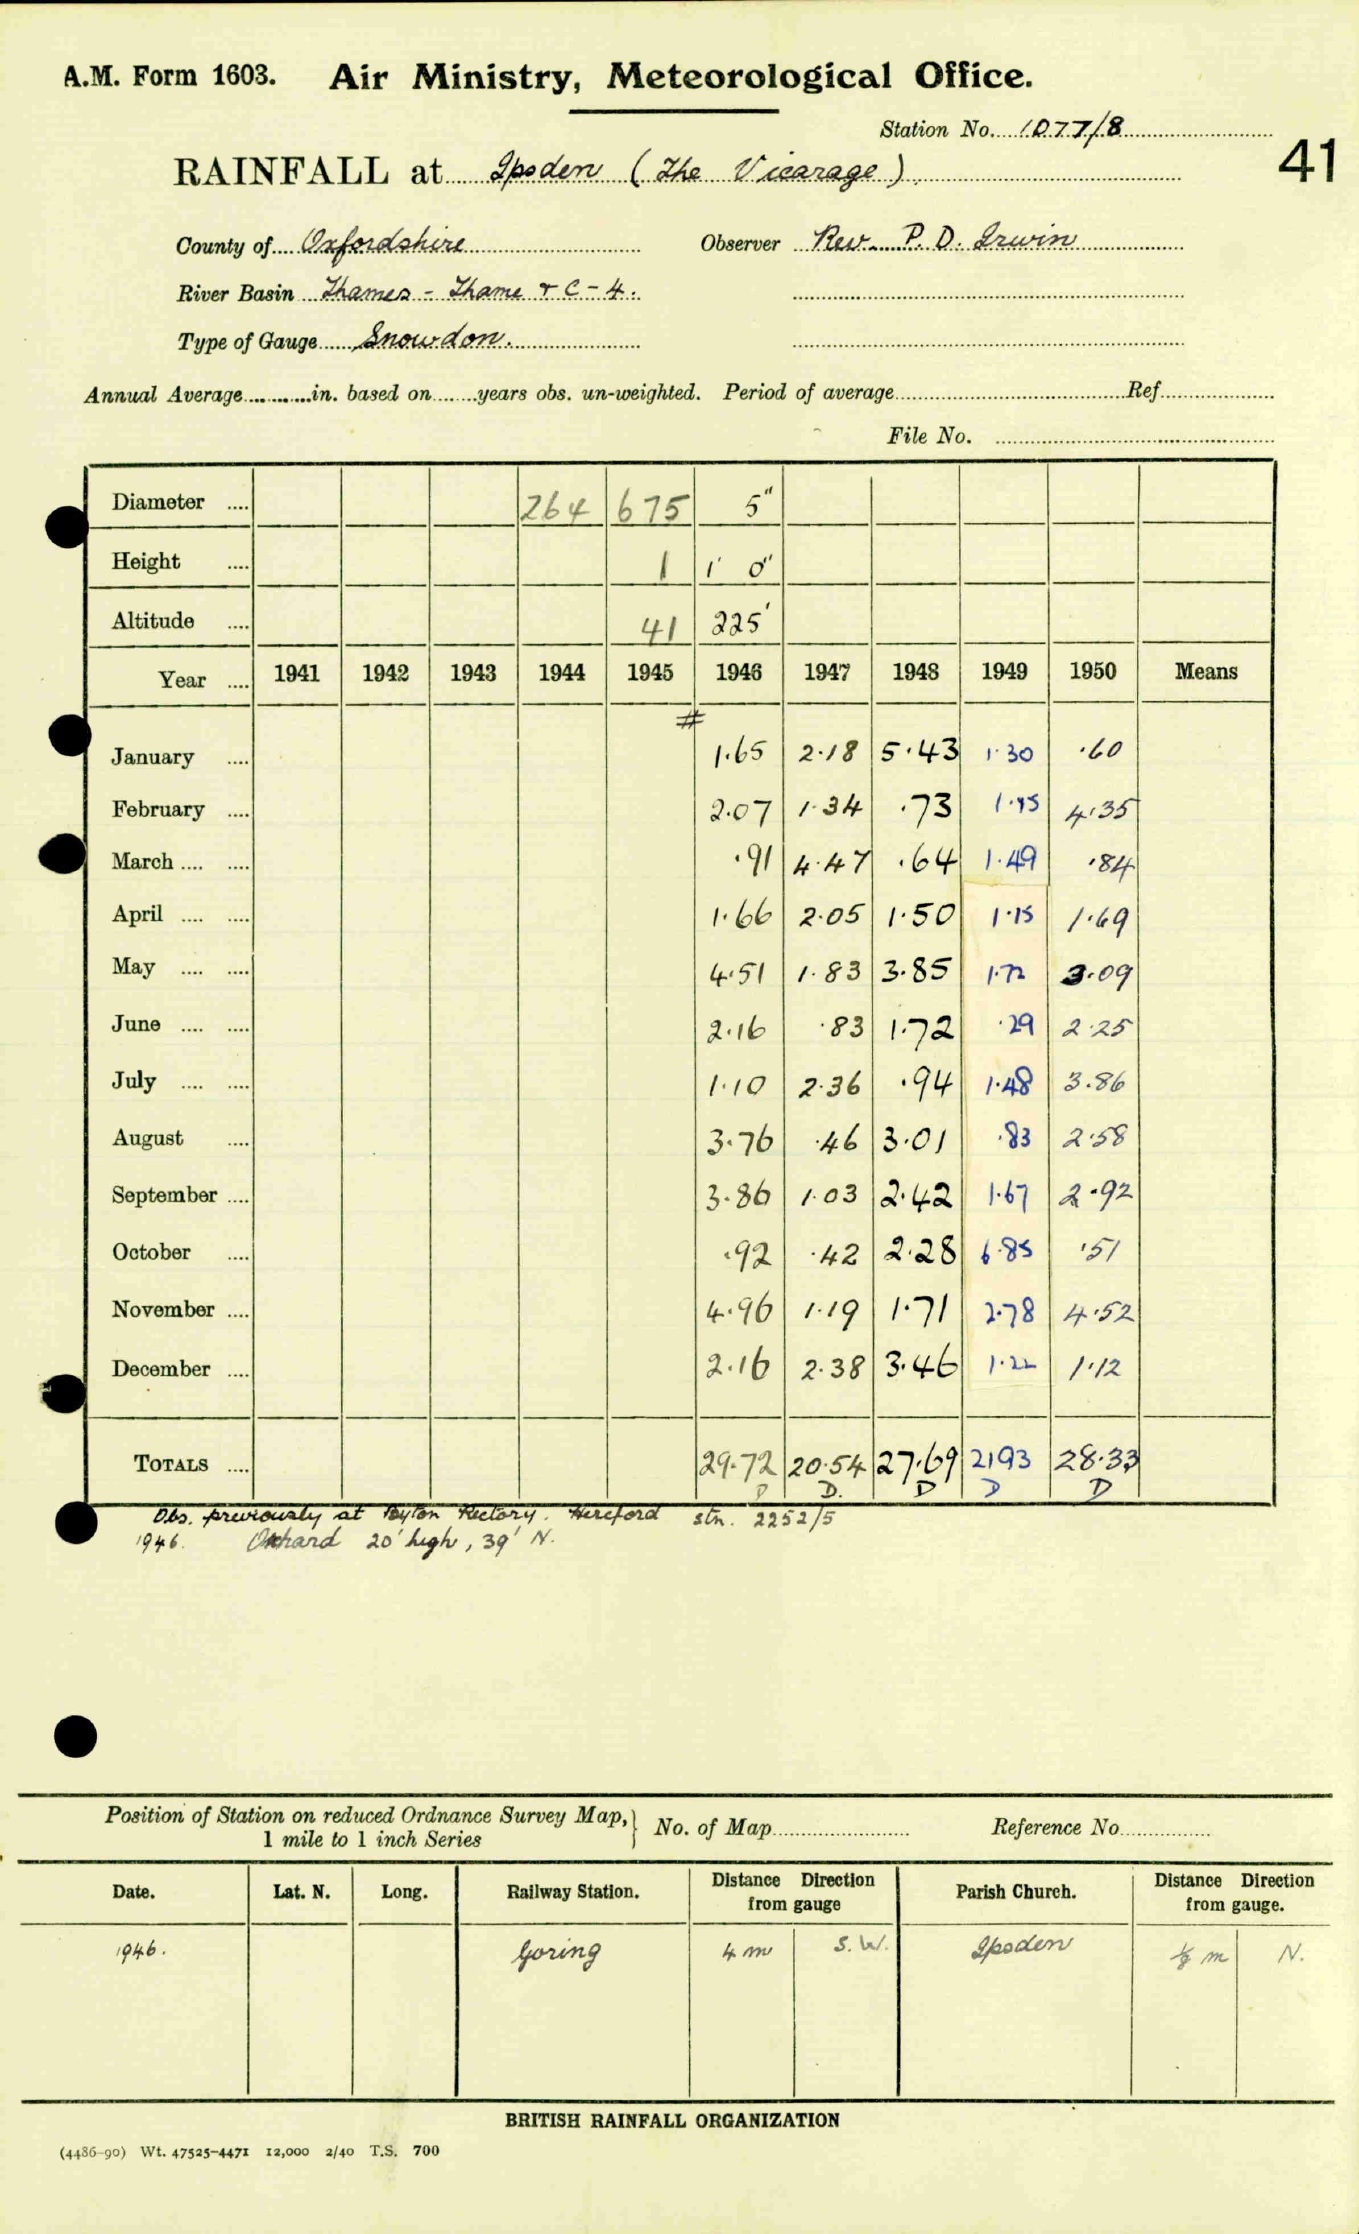 A.M. Form 1603. Air Ministry, Meteorological Office.
Station No. 1077/8
41
RAINFALL at Ipsden (The Vicarage)
County of Oxfordshire Observer Rev. P. D. Irwin
River Basin Thames - Thame & C - 4.
Type of Gauge Snowdon.
Annual Average in. based on years obs. un-weighted. Period of average Ref
File No.
Diameter .... 264 675 5"
Height .... 1 1' 0"
Altitude .... 41 225'
Year .... 1941 1942 1943 1944 1945 1946 1947 1948 1949 1950 Means
#
January .... 1.65 2.18 5.43 1.30 .60
February .... 2.07 1.34 .73 1.15 4.35
March .... .... .91 4.47 .64 1.49 .84
April .... .... 1.66 2.05 1.50 1.15 1.69
May .... .... 4.51 1.83 3.85 1.72 3.09
June .... .... 2.16 .83 1.72 .29 2.25
July .... .... 1.10 2.36 .94 1.48 3.86
August .... 3.76 .46 3.01 .83 2.58
September .... 3.86 1.03 2.42 1.67 2.92
October .... .92 .42 2.28 6.85 .51
November .... 4.96 1.19 1.71 2.78 4.52
December .... 2.16 2.38 3.46 1.22 1.12
TOTALS .... 29.72 20.54 27.69 2193 28.33
D D. D D D
Obs. previously at Byton Rectory. Hereford stn. 2252/5
1946. Orchard 20' high, 39' N.
Position of Station on reduced Ordnance Survey Map, } No. of Map Reference No
1 mile to 1 inch Series
Date. Lat. N. Long. Railway Station. Distance Direction from gauge Parish Church. Distance Direction from gauge.
1946. Goring 4 m S.W. Ipsden 1/8 m N.
BRITISH RAINFALL ORGANIZATION
(4486-90) Wt. 47525-4471 12,000 2/40 T.S. 700